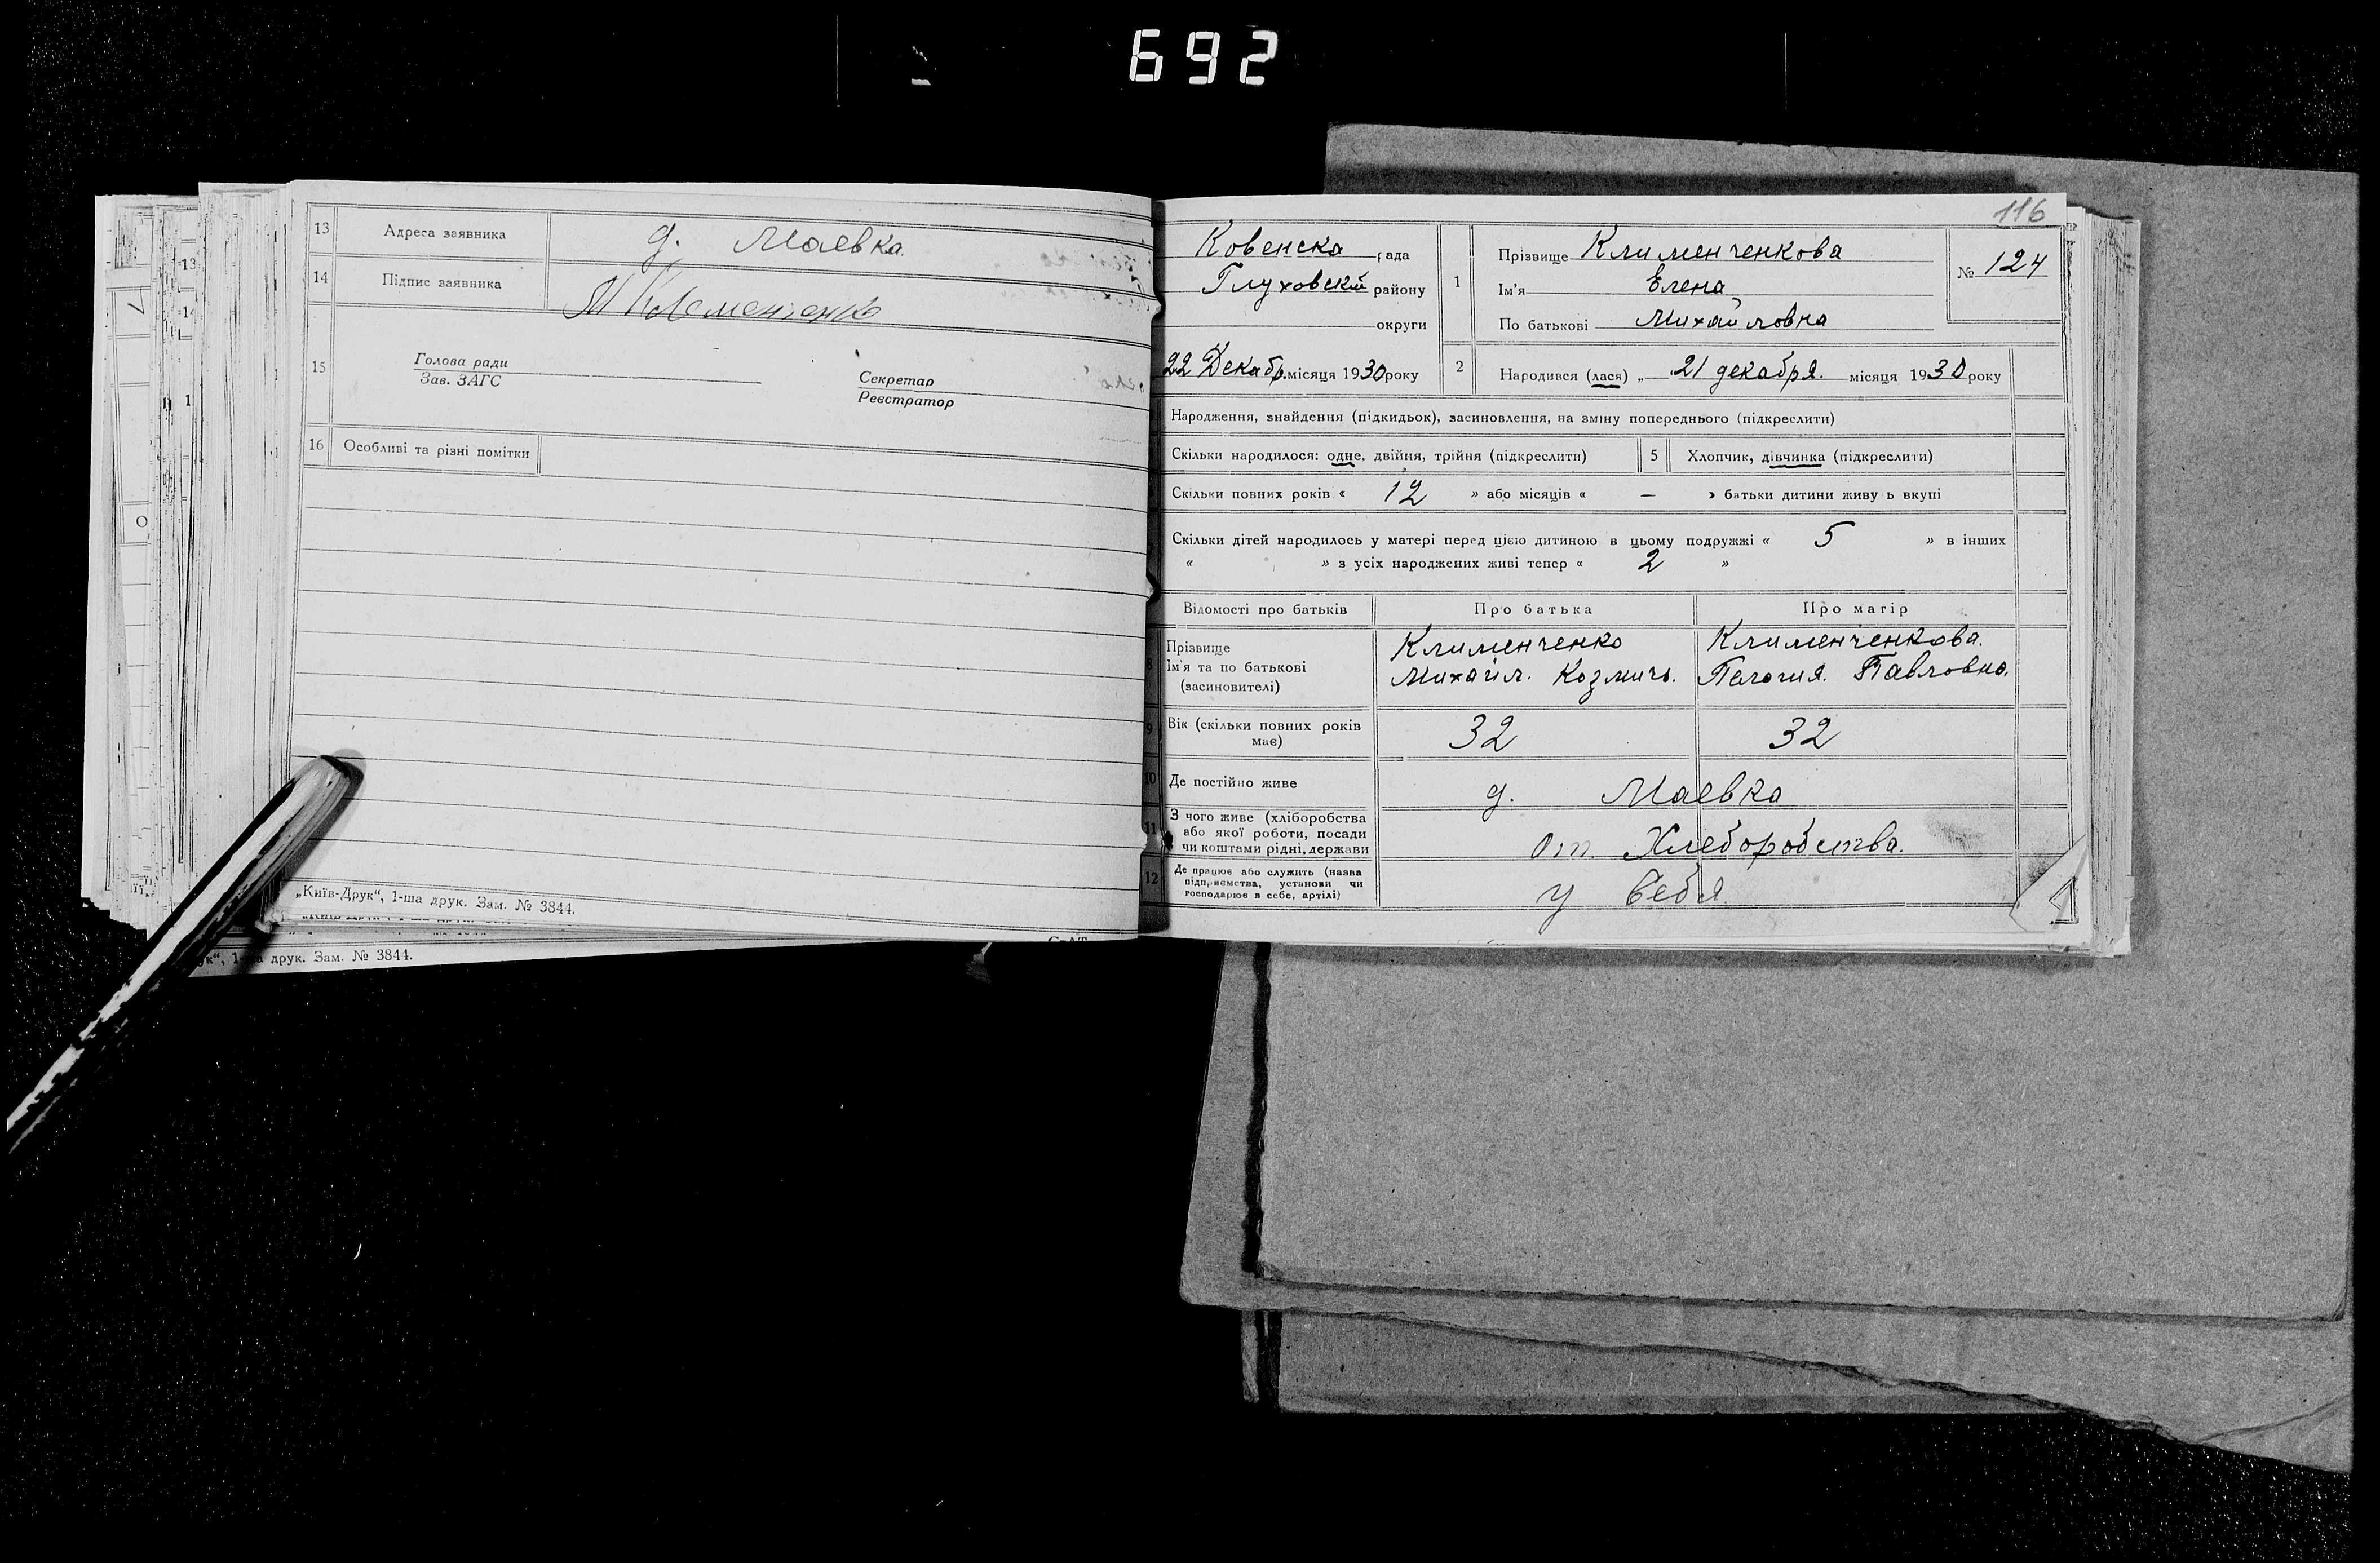 692
13 Адреса заявника д. Маевка.
14 Підпис заявника М Клеменченко
15 Голова ради
Зав. ЗАГС
Секретар
Реєстратор
16 Особливі та різні помітки
„Київ-Друк“, 1-ша друк. Зам. № 3844.
1-ша друк. Зам. № 3844.
116
Ковенска рада
Глуховский району
округи
22 Декабр. місяця 1930 року
1 Прізвище Клименченкова
Ім'я Елена
По батькові Михайловна
№ 124
2 Народився (лася) „ 21 декабря. місяця 1930 року
Народження, знайдення (підкидьок), засиновлення, на зміну попереднього (підкреслити)
Скільки народилося: одне, двійня, трійня (підкреслити) 5 Хлопчик, дівчинка (підкреслити)
Скільки повних років « 12 » або місяців « — » батьки дитини живу ь вкупі
Скільки дітей народилось у матері перед цією дитиною в цьому подружжі « 5 » в інших
« » з усіх народжених живі тепер « 2 »
Відомості про батьків Про батька Про матір
8 Прізвище
Ім'я та по батькові
(засиновителі)
Клименченко
Михайл. Козмичь.
Клименченкова.
Пелогия. Павловна.
9 Вік (скільки повних років
має) 32 32
10 Де постійно живе д. Маевка
11 З чого живе (хліборобства
або якої роботи, посади
чи коштами рідні, держави
от. Хлеборобства.
12 Де працює або служить (назва
підприємства, установи чи
господарює в себе, артілі)
у Себя.